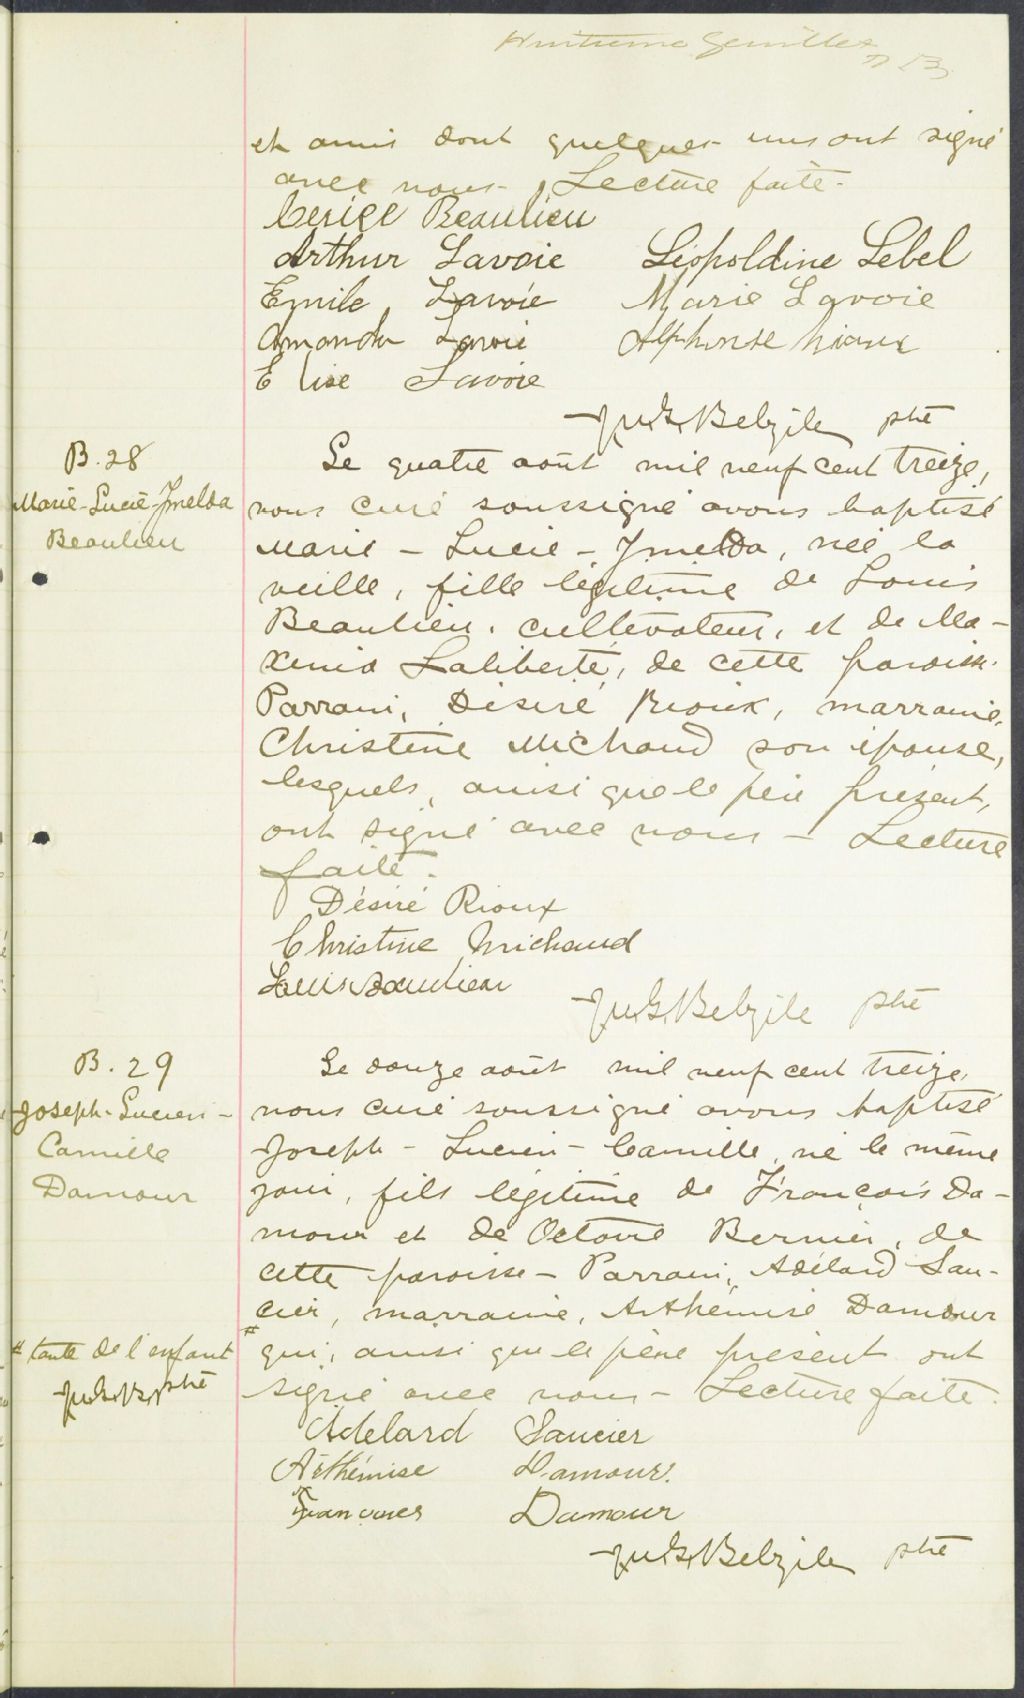 Huitième feuillet
et amis dont quelques uns ont signé
avec nous - Lecture faite -
Cerice Beaulieu
Arthur Lavoie Léopoldine Lebel
Emile Lavoie Marie Lavoie
Amanda Lavoie Alphonse
Elise Lavoie
Belzile ptre
B. 28
Marie-Lucie-Imelda
Beaulieu
Le quatre août mil neuf cent treize,
nous curé soussigné avons baptisé
Marie - Lucie - Imelda, née la
veille, fille légitime de Louis
Beaulieu, cultivateur, et de Ma-
xenia Laliberté, de cette paroisse.
Parrain, Désiré Rioux, marraine,
Christine Michaud son épouse,
lesquels, ainsi que le père présent,
ont signé avec nous - Lecture
faite.
Désiré Rioux
Christine Michaud
Louis Beaulieu
Belzile ptre
B. 29
Joseph-Lucien-
Camille
Damour
Le douze août mil neuf cent treize,
nous curé soussigné avons baptisé
Joseph - Lucien - Camille, né le même
jour, fils légitime de François Da-
mour et de Octavie Bernier, de
cette paroisse - Parrain, Adélard Sau-
cier, marraine, Arthémise Damour
# qui, ainsi que le père présent ont
signé avec nous - Lecture faite.
# tante de l'enfant
ptre
Adelard Saucier
Arthémise Damour.
François Damour
Belzile ptre